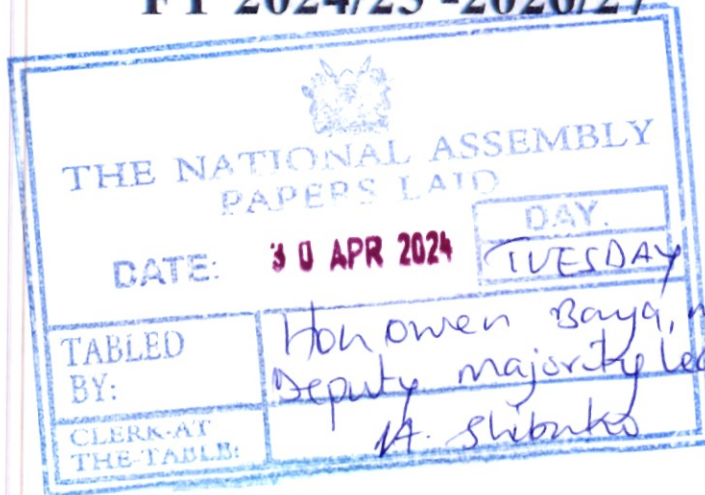 FY 2024/25 -2026/27
THE NATIONAL ASSEMBLY
PAPERS LAID
DATE: 30 APR 2024
DAY.
TUESDAY
TABLED BY:
Hon Owen Baya, m
Deputy majority lea
CLERK-AT
THE-TABLE:
A. Shibuko